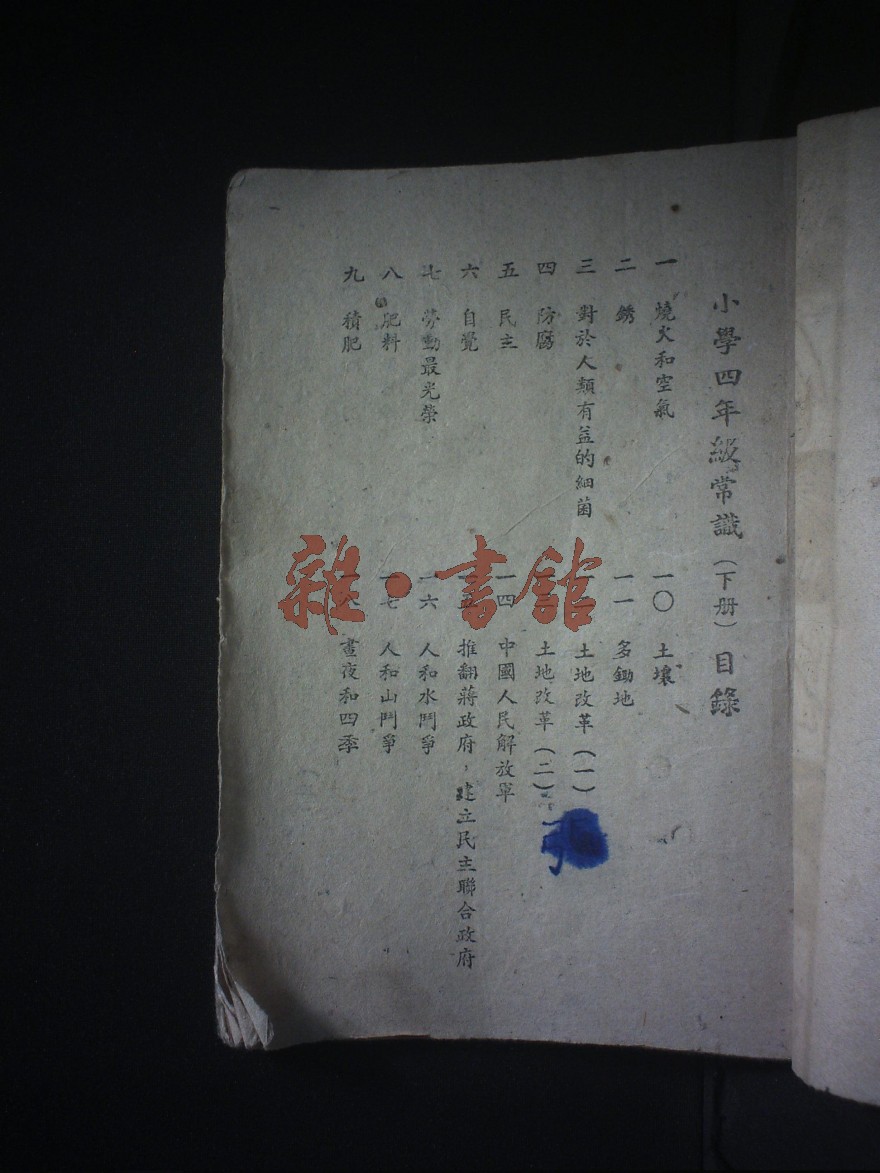 小學四年級常識（下册）目錄
一　燒火和空氣
二　銹
三　對於人類有益的細菌
四　防腐
五　民主
六　自覺
七　勞動最光榮
八　肥料
九　積肥
一〇　土壤
一一　多鋤地
一二　土地改革（一）
一三　土地改革（二）
一四　中國人民解放軍
一五　推翻蔣政府，建立民主聯合政府
一六　人和水鬥爭
一七　人和山鬥爭
一八　晝夜和四季
雜·書館